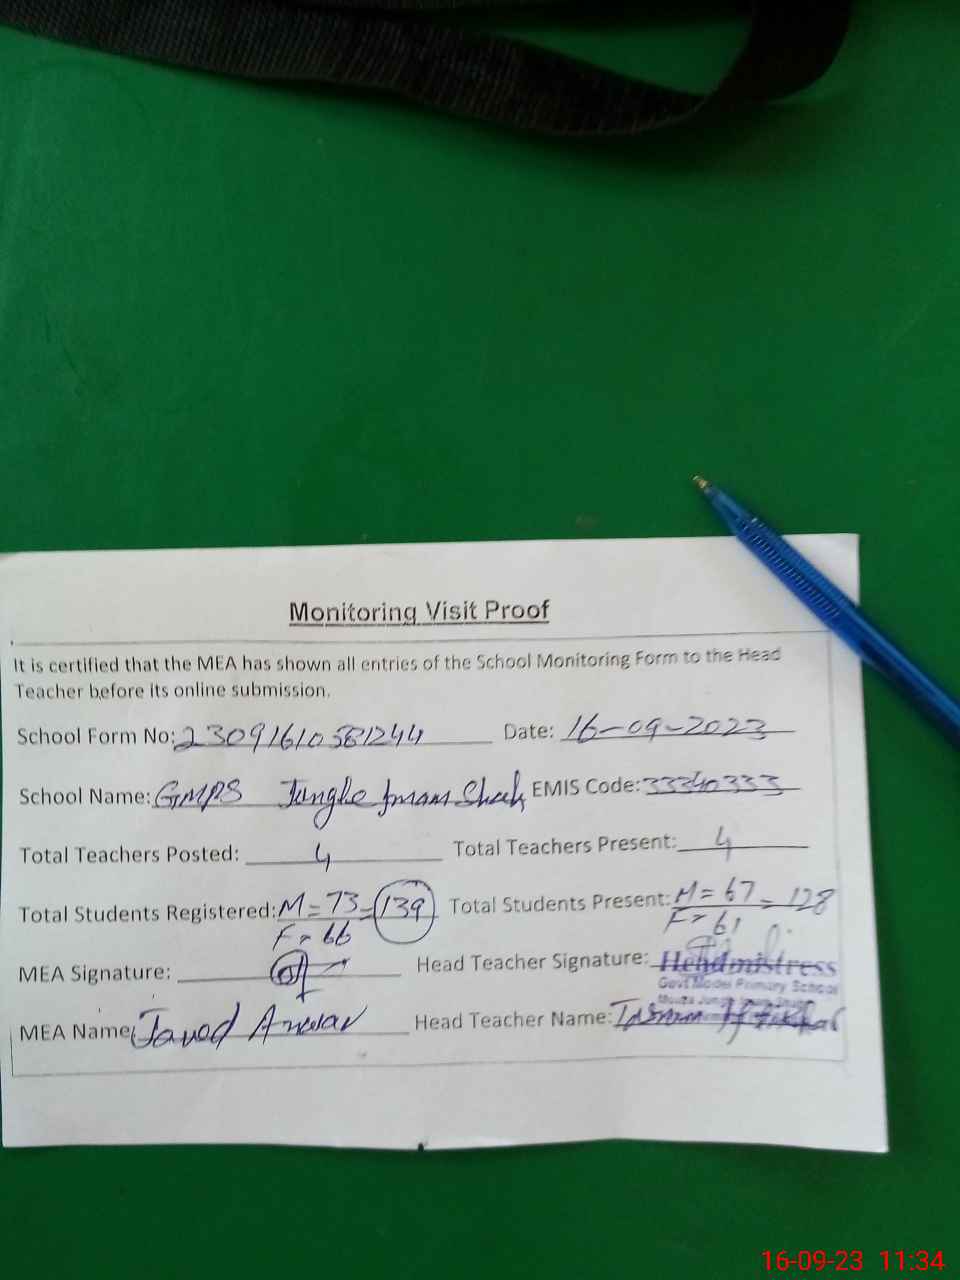 Monitoring Visit Proof
It is certified that the MEA has shown all entries of the School Monitoring Form to the Head
Teacher before its online submission.
School Form No: 23091610581244 Date: 16-09-2023
School Name: GMPS Jungle Imam Shah EMIS Code: 33340333
Total Teachers Posted: 4 Total Teachers Present: 4
Total Students Registered: M = 73 = 139 Total Students Present: M = 67 = 128
F = 66 F = 61
MEA Signature: Head Teacher Signature: Headmistress
Govt Model Primary School
MEA Name: Javed Anwar Head Teacher Name:
16-09-23 11:34